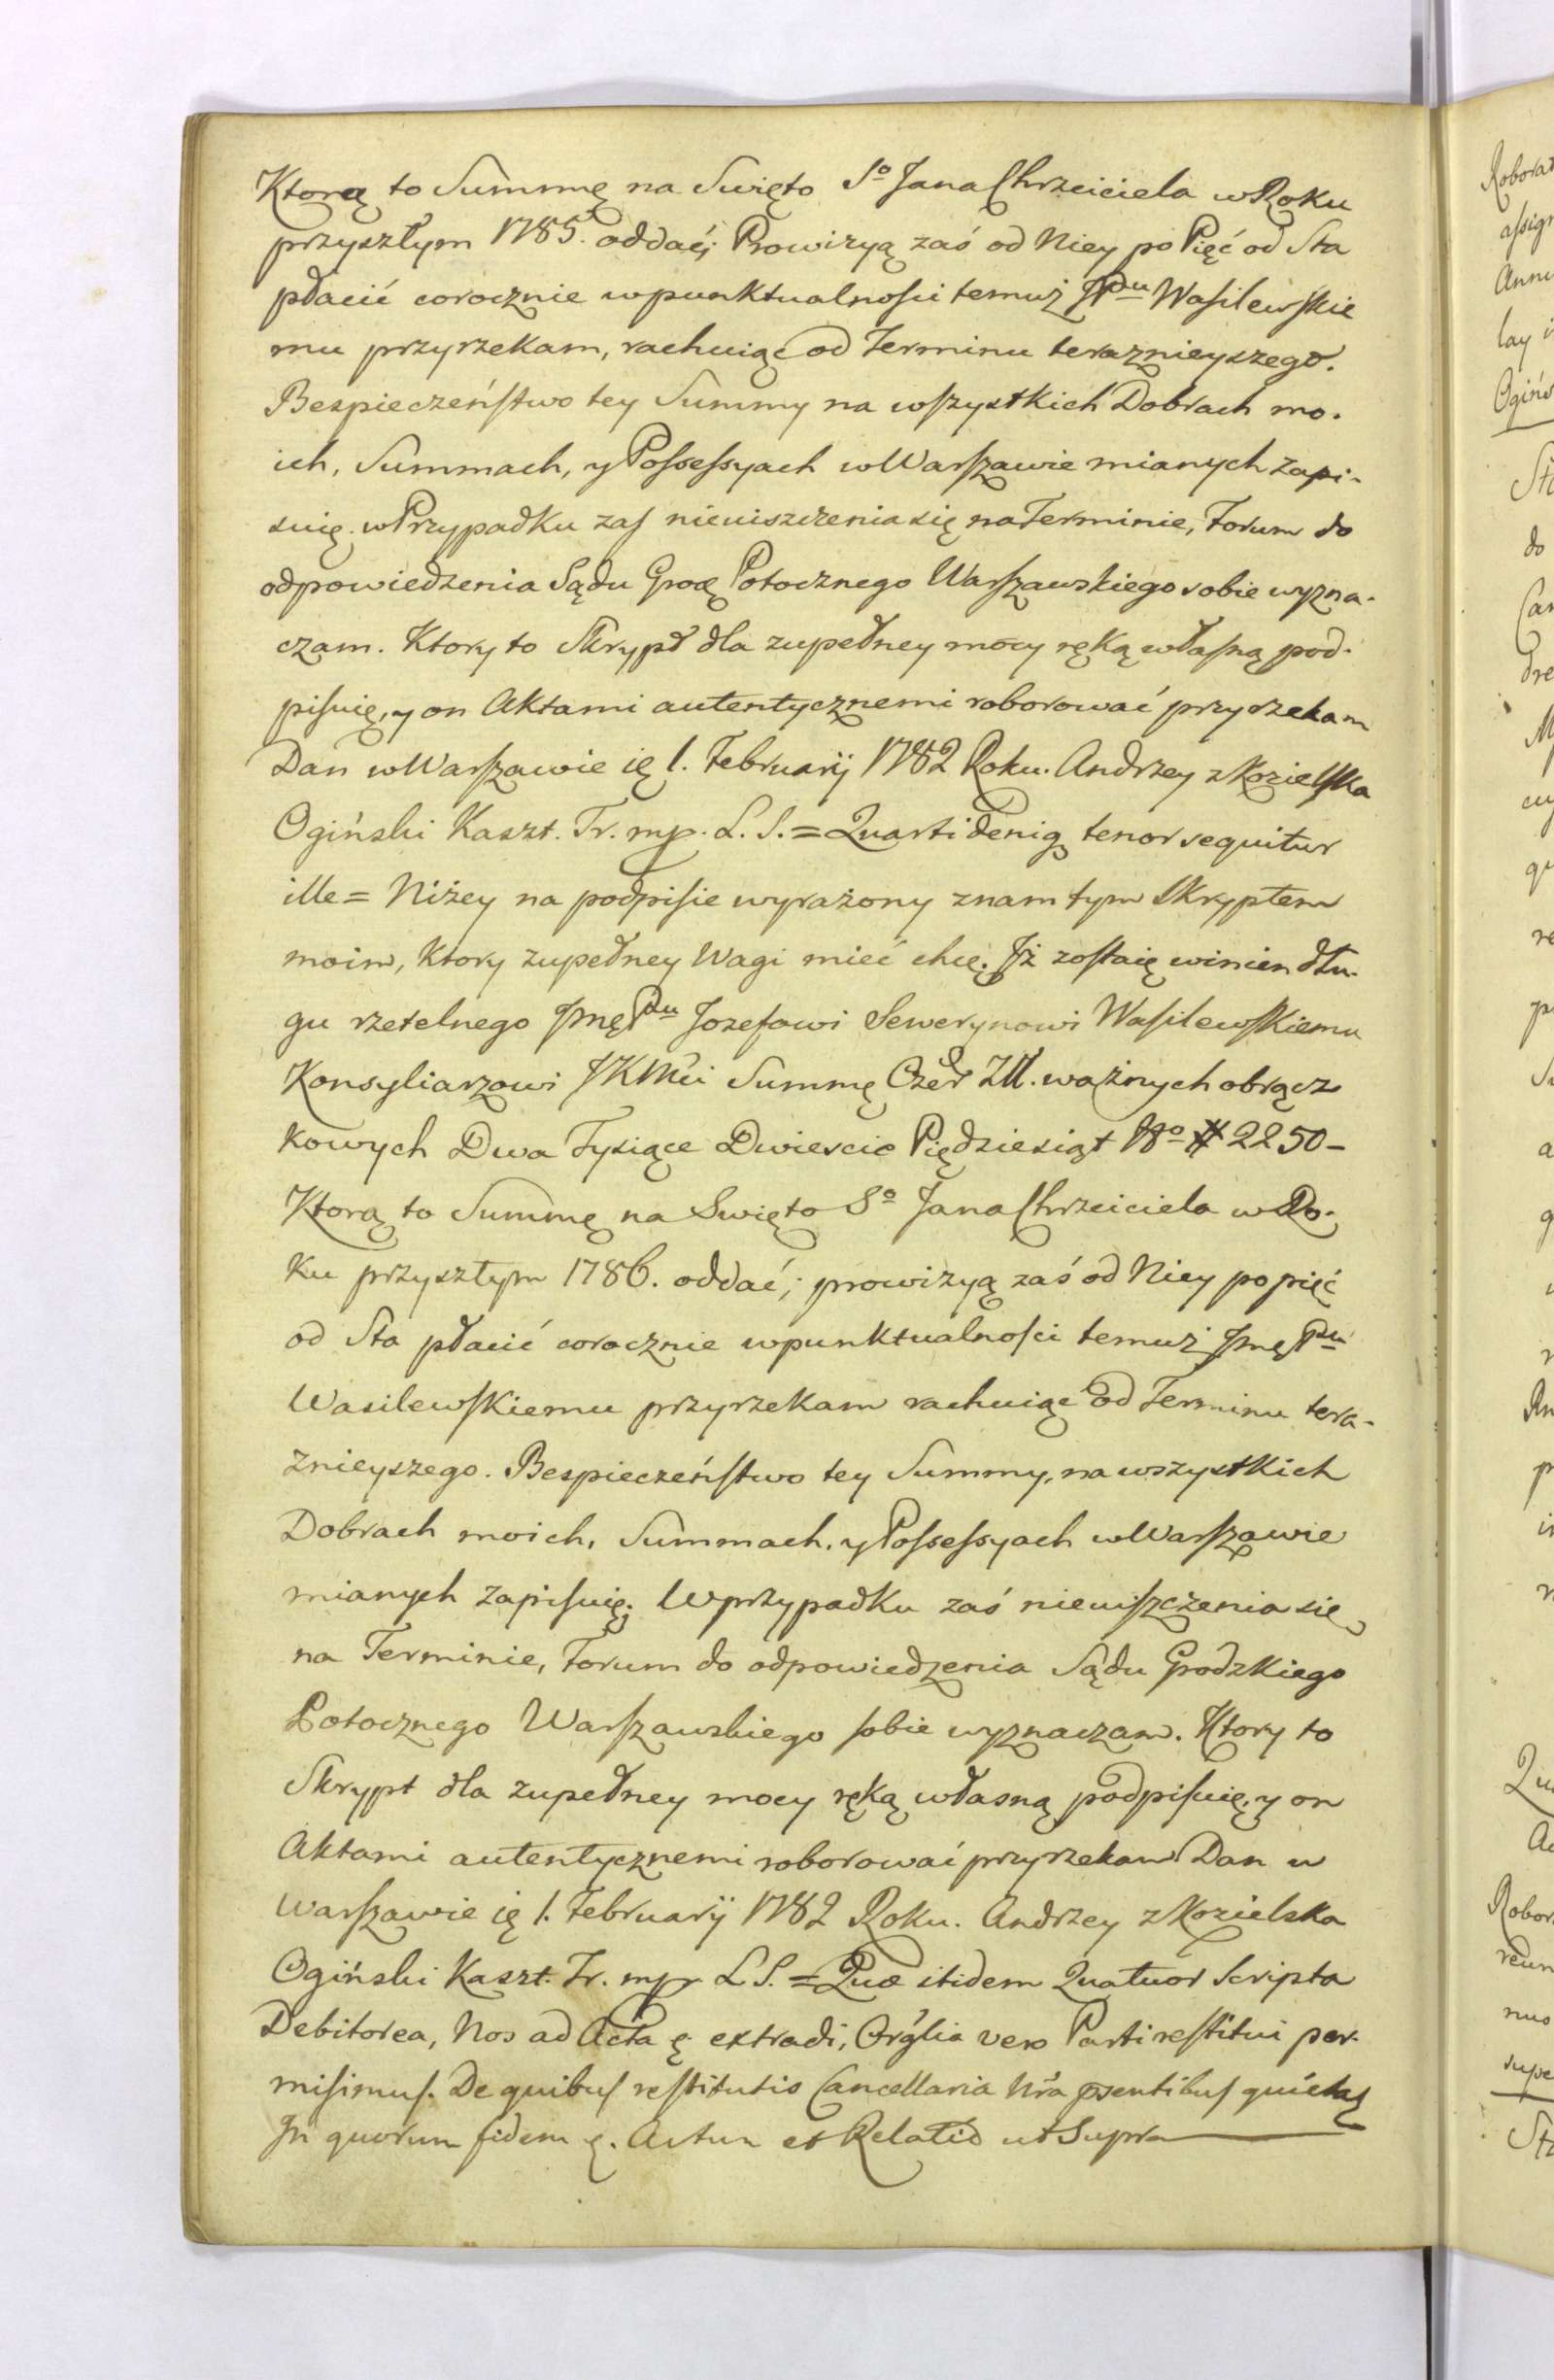 Ktorą to Summę na Swięto So Jana Chrzciciela w Roku
przyszłym 1785. oddać; Prowizyą zaś od Niey po Pięć od Sta
płacić corocznie w punktualności temuż JPu Wasilewskie
mu przyrzekam, rachuiąc od Terminu teraznieyszego.
Bespieczeństwo tey Summy na wszystkich Dobrach mo-
ich, Summach, y Possessyach w Warszawie mianych zapi-
suię. w Przypadku zas nieuiszczenia się na Terminie, Forum do
odpowiedzenia Sądu Grod Potocznego Warszawskiego sobie wyzna-
czam. Ktory to Skrypt dla zupełney mocy ręką własną pod-
pisuię, y on Aktami autentycznemi roborować przyrzekam
Dan w Warszawie 1. Februarij 1782 Roku. Andrzey z Kozielska
Ogiński Kaszt. Tr. mp. L. S. = Quarti deniq tenor sequitur
ille = Niżey na podpisie wyrażony znam tym Skryptem
moim, Ktory zupełney Wagi mieć chcę. Iż zostaię winien dłu-
gu rzetelnego Jmę Pu Jozefowi Sewerynowi Wasilewskiemu
Konsyliarzowi JKMci Summę Czer Zll. ważnych obrącz
kowych Dwa Tysiące Dwiescie Pięдziesiąt No # 2250-
Ktorą to Summę na Swięto So Jana Chrzciciela w Ro-
ku przyszłym 1786. oddać; prowizyą zaś od Niey po pięć
od Sta płacić corocznie w punktualności temuż Jmę Pu
Wasilewskiemu przyrzekam rachuiąc od Terminu tera-
znieyszego. Bespieczeństwo tey Summy, na wszystkich
Dobrach moich, Summach, y Possessyach w Warszawie
mianych zapisuię. W przypadku zaś nieuiszczenia się
na Terminie, Forum do odpowiedzenia Sądu Grodzkiego
Potocznego Warszawskiego sobie wyznaczam. Ktory to
Skrypt dla zupełney mocy ręką własną podpisuię, y on
Aktami autentycznemi roborować przyrzekam Dan w
Warszawie 1. Februarij 1782 Roku. Andrzey z Kozielska
Ogiński Kaszt. Tr. mp L S. = Quæ itidem Quatuor Scripta
Debitorea, Nos ad Acta extradi, Orglia vero Parti restitui per-
misimus. De quibus restitutis Cancellaria Nra psentibus quietat
In quorum fidem Actum et Relatio ut Supra